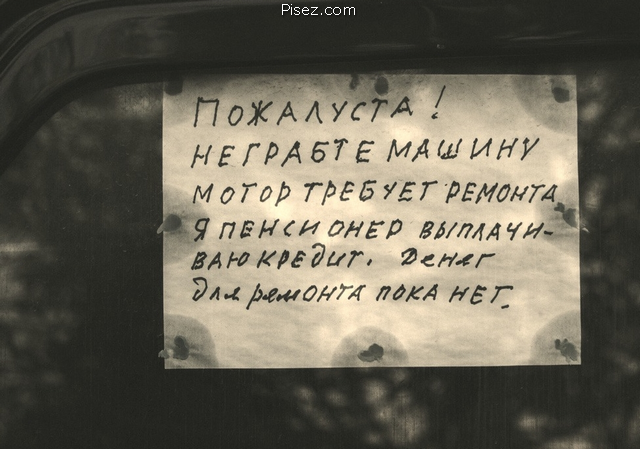 Pisez.com
ПОЖАЛУСТА!
НЕ ГРАБТЕ МАШИНУ
МОТОР ТРЕБУЕТ РЕМОНТА
Я ПЕНСИОНЕР ВЫПЛАЧИ-
ВАЮ КРЕДИТ. Денег
для ремонта пока нет.